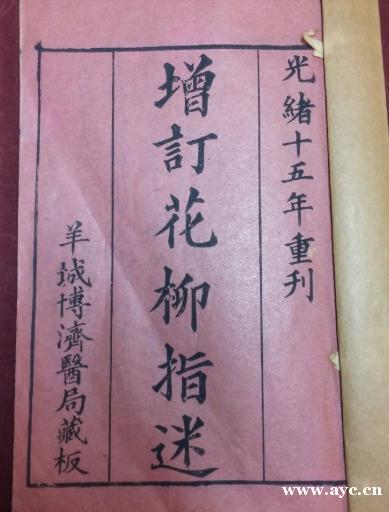 光緒十五年重刊
增訂花柳指迷
羊城博濟醫局藏板
www.ayc.cn